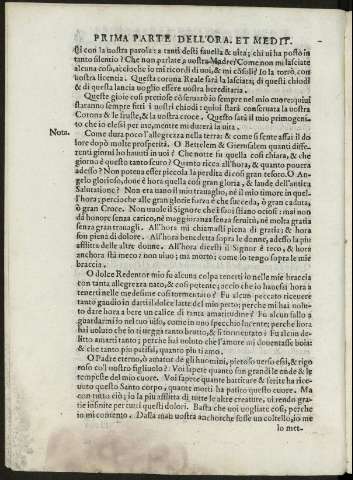 PRIMA PARTE DELL'ORA. ET MEDIT.
li con la uostra parola: a tanti desti fauella & uita; chi ui ha posto in
tanto silentio? Che non parlate a uostra Madre? Come non mi lasciate
alcuna cosa, accioche io mi ricordi di uoi, & mi cõsoli? Io la torrò, con
uostra licentia. Questa corona Reale sarà la lasciata; di questi chiodi
& di questa lancia uoglio essere uostra hereditaria.
Queste gioie così pretiose cõseruarò io sempre nel mio cuore: quiui
staranno sempre fitti i uostri chiodi: quiui starà conseruata la uostra
Corona & le fruste, & la uostra croce. Questo sarà il mio primogeni-
to che io elessi per me, mentre mi durerà la uita.
Nota. Come dura poco l'allegrezza nella terra: & come si sente assai il do
lore dopò molte prosperità. O Bettelem & Gierusalem quanti diffe-
renti giorni ho hauuti in uoi? Che notte fu quella così chiara, & che
giorno è questo tanto scuro? Quanto ricca all'hora, & quanto pouera
adesso? Non poteua esser piccola la perdita di così gran tesoro. O An-
gelo glorioso, doue è hora quella così gran gloria, & laude dell'antica
Salutatione? Non era uano il mio trauaglio, nè il mio timore in quel-
l'hora; percioche alle gran glorie forza è che succeda, ò gran caduta,
ò gran Croce. Non uuole il Signore che i suoi stiano otiosi: mai non
dà honore senza carico, nè maggioranza senza seruitù, nè molta gratia
senza gran trauagli. All'hora mi chiamasti piena di gratia; & hora
son piena di dolore. All'hora benedetta sopra le donne, adesso la più
afflitta delle altre donne. All'hora dicesti il Signor è teco, & hora
anchora stà meco: non uiuo; ma morto: come lo tengo sopra le mie
braccia.
O dolce Redentor mio fu alcuna colpa tenerti io nelle mie braccia
con tanta allegrezza nato, & così potente; accio che io hauessi hora a
tenerti nelle medesime così tormentato? Fu alcun peccato riceuere
tanto gaudio in darti il dolce latte del mio petto; perche mi hai uolu-
to dare hora a bere un calice di tanta amaritudine? Fu alcun fallo
guardarmi io nel tuo uiso, come in uno specchio lucente; perche hora
hai uoluto che io ti uegga tanto brutto, & sì tormentato? Fu alcun de-
litto amarti tanto; perche hai uoluto che l'amor mi douentasse boia:
& che tanto più patissi, quanto più ti amo.
O Padre eterno, ò amator de gli huomini, pietoso uerso essi, & rigo
roso col uostro figliuolo? Voi sapete quanto sian grandi le onde & le
tempeste del mio cuore. Voi sapete quante battiture & ferite ha rice-
uuto questo Santo corpo, quante morti ha patito questo cuore. Ma
con tutto ciò; io la piu afflitta di tutte le altre creature, ui rendo gra-
tie infinite per tutti questi dolori. Basta che uoi uogliate così, perche
io mi contento. Dalla man uostra anchorche fusse un coltello, io me
lo met-